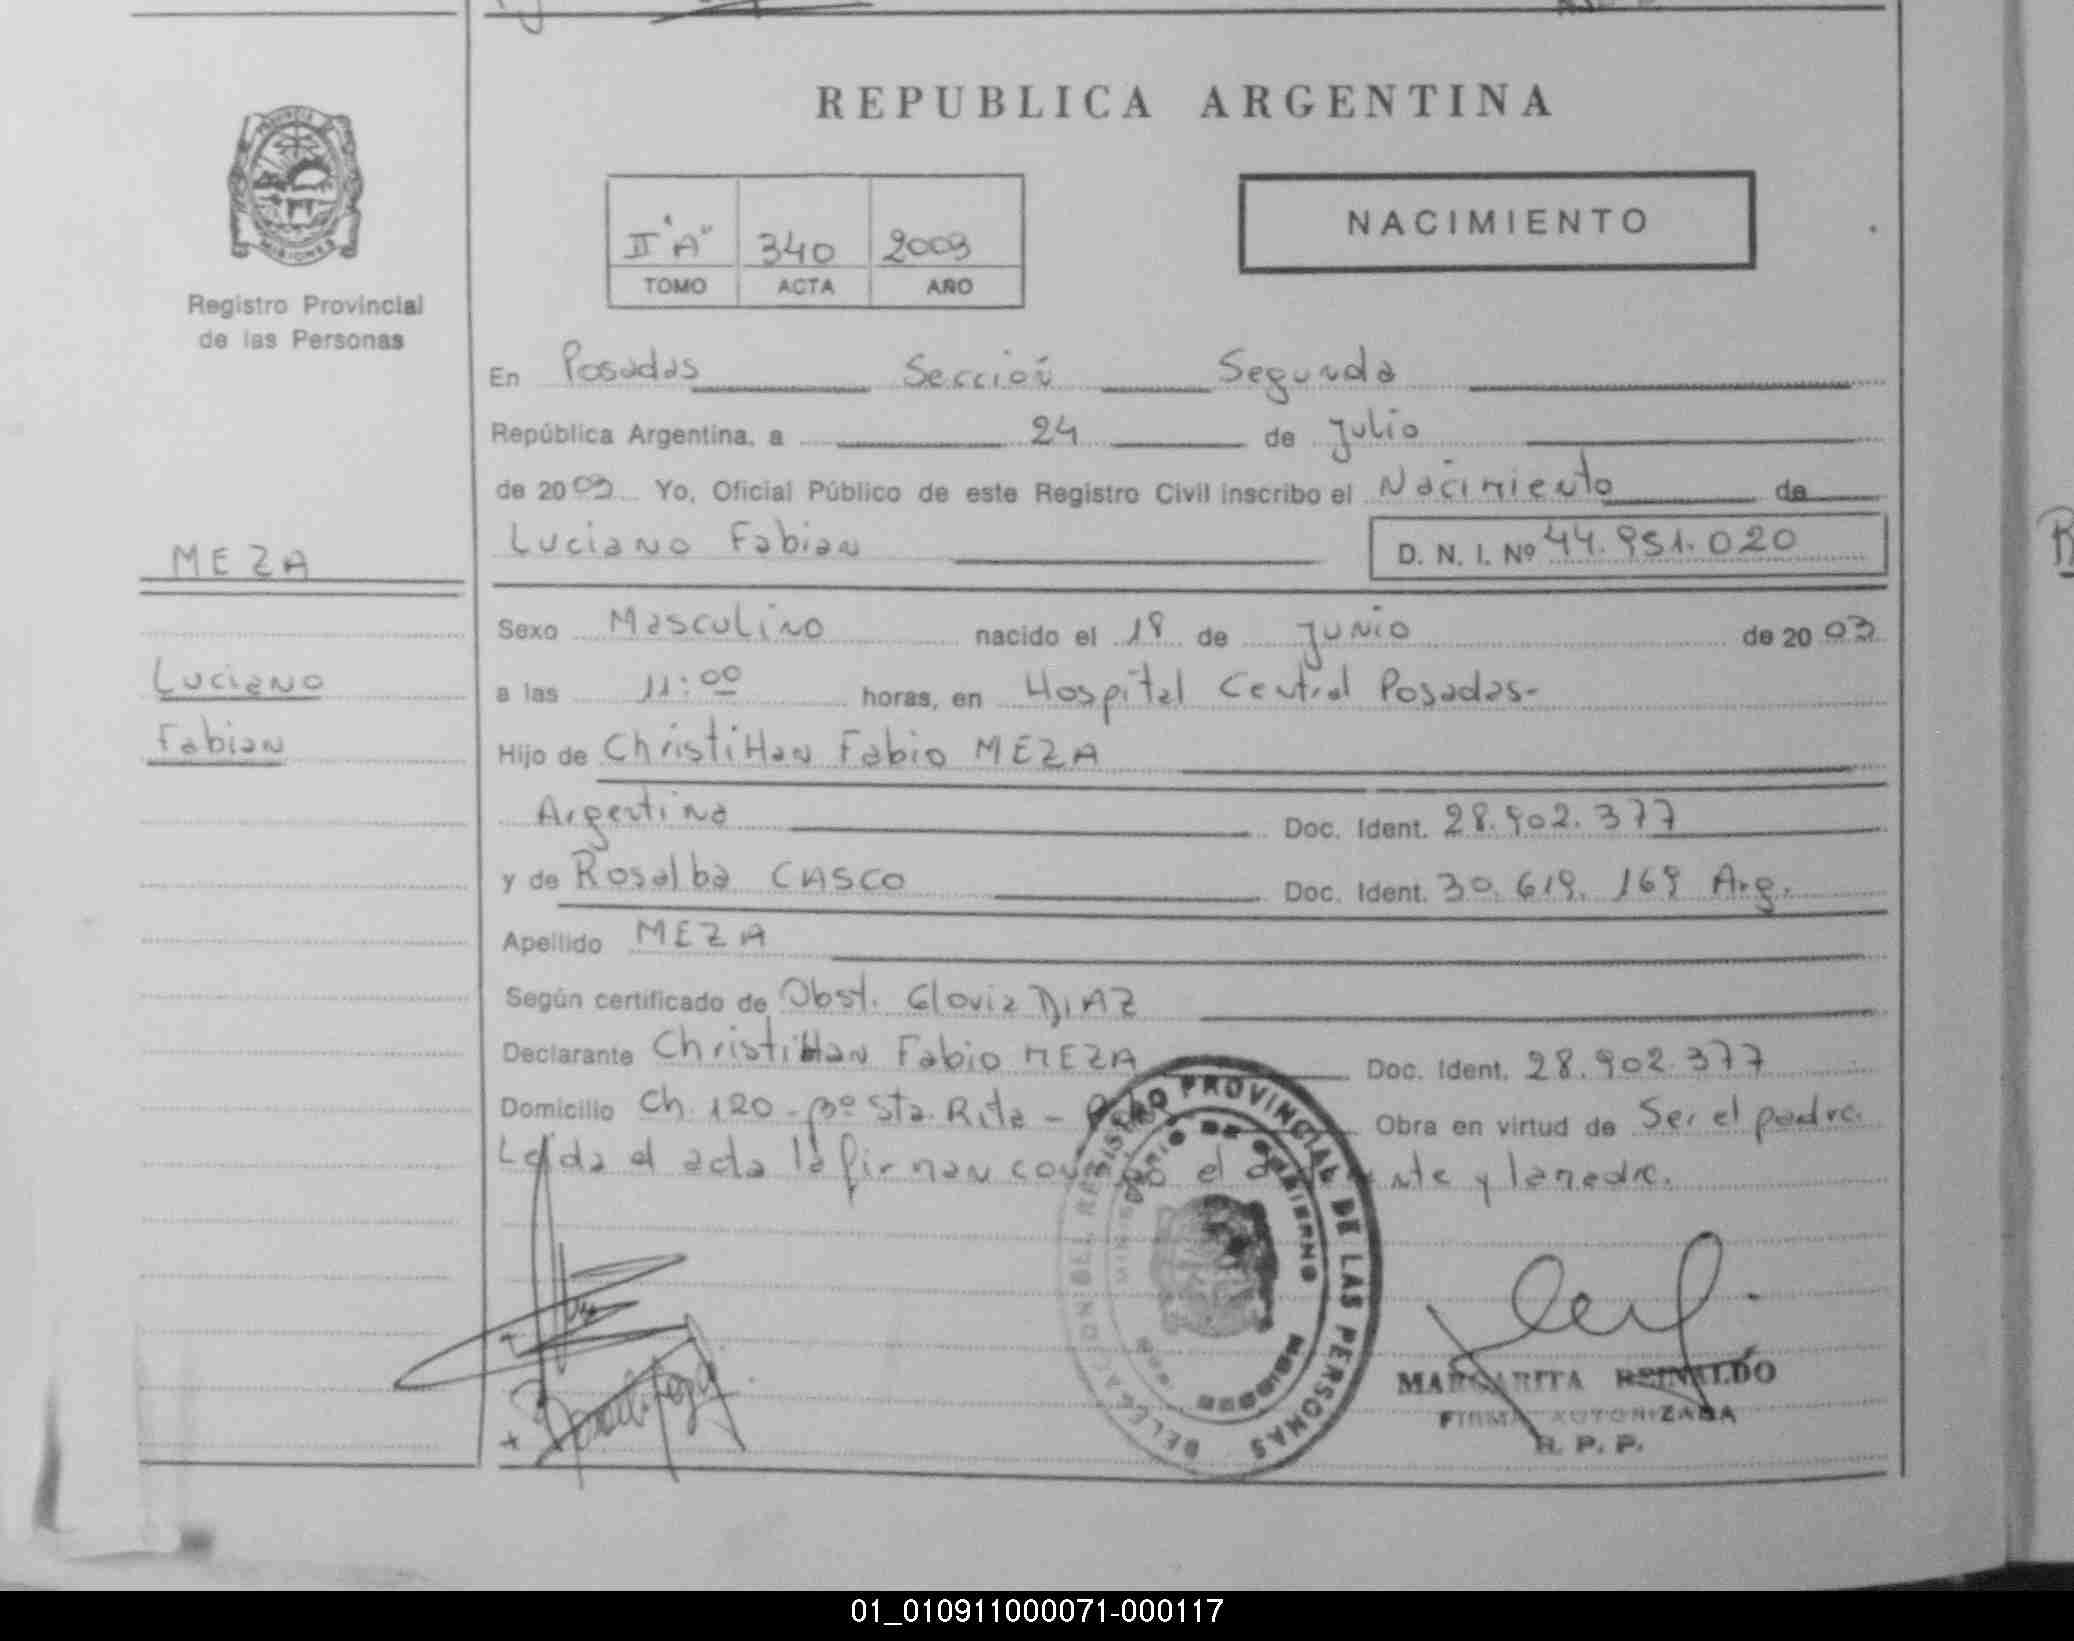 REPUBLICA ARGENTINA
PROVINCIA DE MISIONES
Registro Provincial
de las Personas
II "A" 340 2003
TOMO ACTA AÑO
NACIMIENTO
En Posadas Sección Segunda
República Argentina, a 24 de Julio
de 2003 Yo, Oficial Público de este Registro Civil inscribo el Nacimiento de
MEZA
Luciano Fabian D. N. I. Nº 44.951.020
Luciano
Fabian
Sexo Masculino nacido el 18 de Junio de 2003
a las 11:00 horas, en Hospital Central Posadas-
Hijo de ChristiHan Fabio MEZA
Argentina Doc. Ident. 28.902.377
y de Rosalba CASCO Doc. Ident. 30.619.169 Arg.
Apellido MEZA
Según certificado de Obst. Gloria DIAZ
Declarante ChristiHan Fabio MEZA Doc. Ident. 28.902.377
Domicilio Ch. 120 - Bº Sta. Rita - Obra en virtud de Ser el padre.
Leida el acta la firman el y la madre.
DELEGACION DEL REGISTRO PROVINCIAL DE LAS PERSONAS
MINISTERIO DE GOBIERNO
MARGARITA REINALDO
FIRMA AUTORIZADA
R. P. P.
01_010911000071-000117